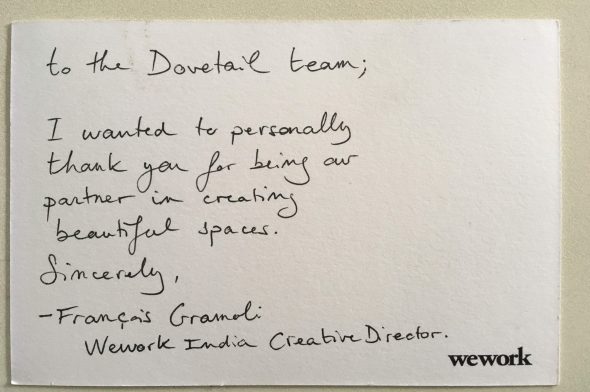 to the Dovetail team;
I wanted to personally
thank you for being our
partner in creating
beautiful spaces.
Sincerely,
- François Gramoli
Wework India Creative Director.
wework